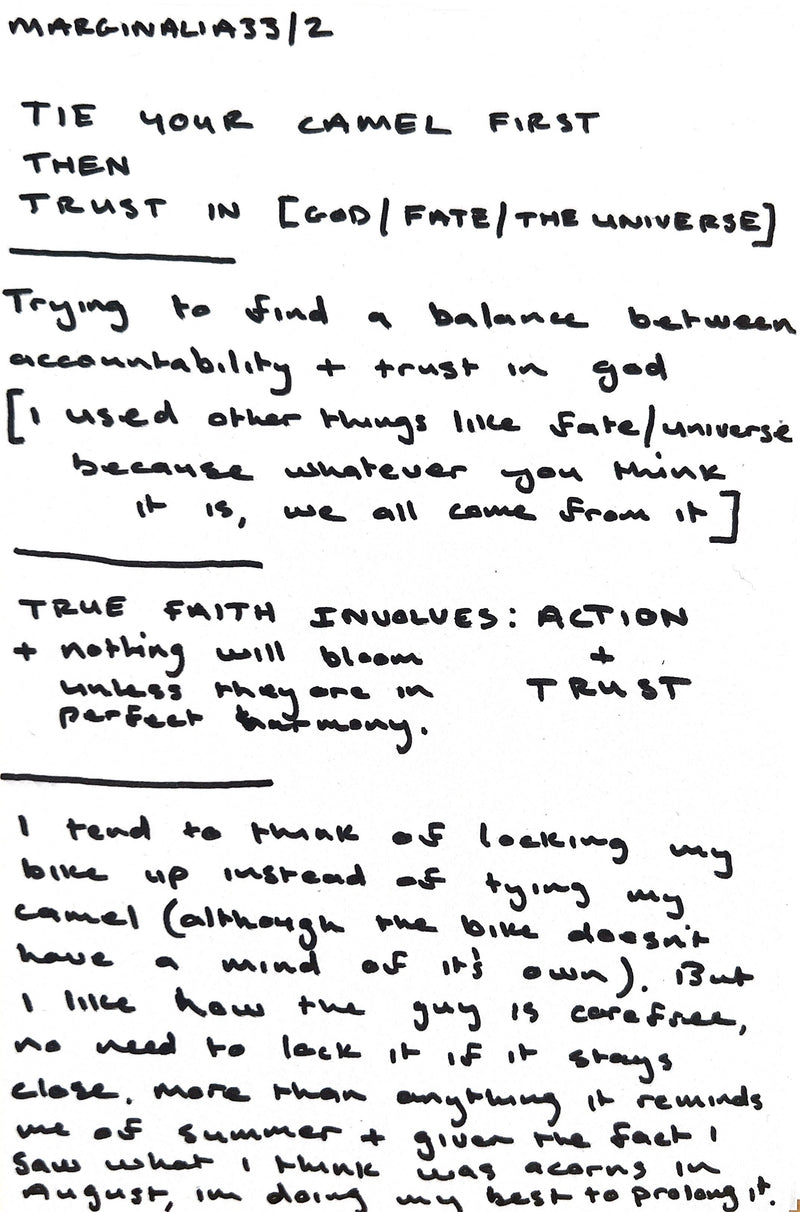 MARGINALIA33/2
TIE YOUR CAMEL FIRST
THEN
TRUST IN [GOD/FATE/THE UNIVERSE]
Trying to find a balance between
accountability + trust in god
[I used other things like fate/universe
because whatever you think
it is, we all come from it]
TRUE FAITH INVOLVES: ACTION
+
TRUST
+ nothing will bloom
unless they are in
perfect harmony.
I tend to think of locking my
bike up instead of tying my
camel (although the bike doesn't
have a mind of it's own). But
I like how the guy is carefree,
no need to lock it if it stays
close. more than anything it reminds
me of summer + given the fact I
saw what I think was acorns in
August, im doing my best to prolong it.